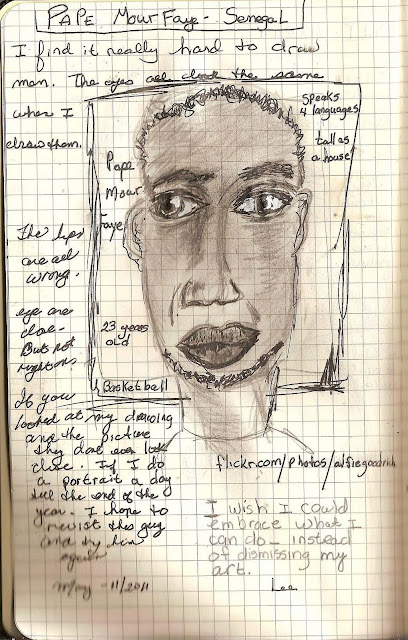 PAPE MOUR FAYE - SENEGAL
I find it really hard to draw
men. The eyes all look the same
when I
draw them.
speaks
4 languages
tall as
a house
Pape
Mour
Faye
The lips
are all
wrong.
eyes are
close -
But not
right on.
23 years
old
Basketball
If you
looked at my drawing
and the picture
they dont even look
close. If I do
a portrait a day
till the end of the
year. I hope to
revisit this guy
and try him
again
May - 11/2011
flickr.com/photos/alfiegoodrich
I wish I could
embrace what I
can do - instead
of dismissing my
art.
Lee